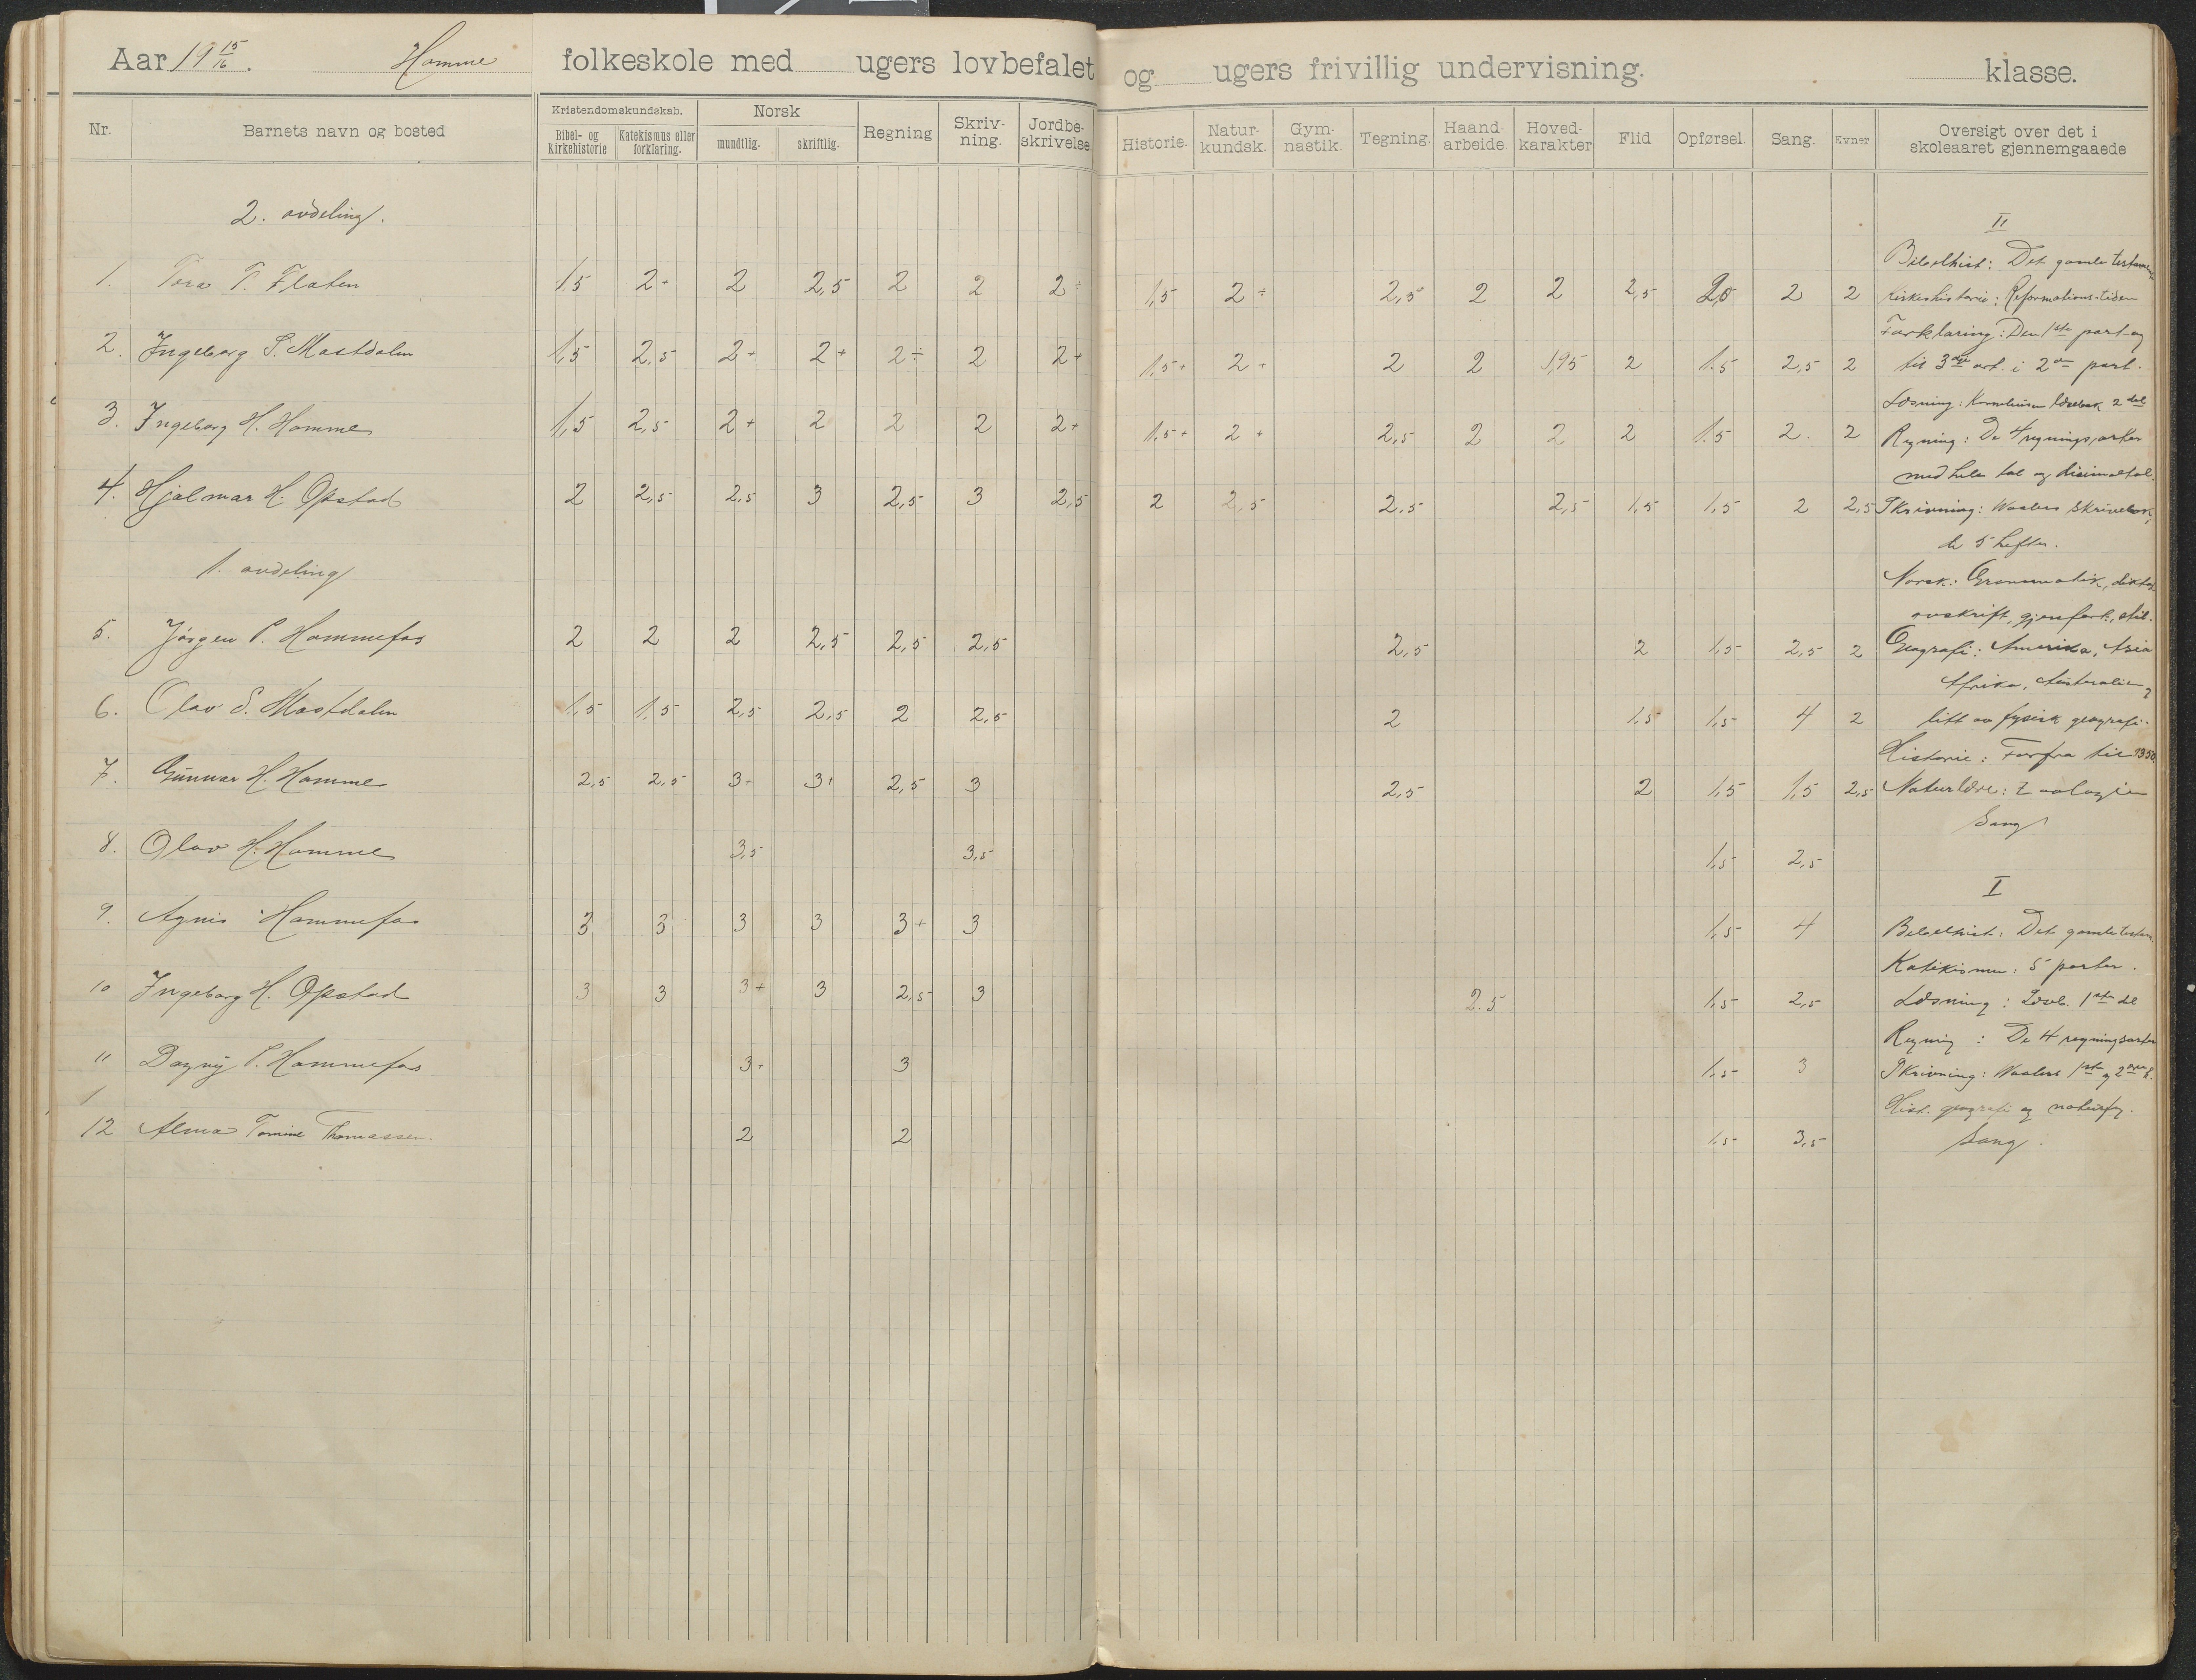 Aar 19 15/16. Homme folkeskole med ugers lovbefalet og ugers frivillig undervisning. klasse.
Nr. Barnets navn og bosted Kristendomskundskab. Bibel- og Kirkehistorie Katekismus eller forklaring. Norsk mundtlig. skriftlig. Regning Skriv-ning. Jordbe-skrivelse Historie. Natur-kundsk. Gym-nastik. Tegning. Haand-arbeide. Hoved-karakter Flid Opførsel. Sang. Evner Oversigt over det i skoleaaret gjennemgaaede
2. avdeling.
II
Bibelhist: Det gamle testamen
1. Tora T. Flaten 1,5 2+ 2 2,5 2 2 2÷ 1,5 2÷ 2,5 2 2 2,5 2 2 Kirkehistorie: Reformations-tiden
Forklaring: Den 1ste part og
2. Ingeborg S. Mostdalen 1,5 2,5 2+ 2+ 2÷ 2 2+ 1,5+ 2+ 2 2 1,95 2 1.5 2,5 2 til 3die art. i 2den part.
Læsning: Læsebok 2 del
3. Ingeborg H. Homme 1,5 2,5 2+ 2 2 2 2+ 1,5+ 2+ 2,5 2 2 2 1.5 2. 2 Regning: De 4 regningsarter
med hele tal og desimaltal.
4. Hjalmar H. Opstad 2 2,5 2,5 3 2,5 3 2,5 2 2,5 2.5 2,5 1,5 1,5 2 2,5 Skrivning: Waalers skrivebok,
de 5 hefter.
1. avdeling
Norsk: Grammatik, diktat
avskrift, gjenfort., stil.
5. Jørgen P. Hommefos 2 2 2 2,5 2,5 2,5 2,5 2 1,5 2,5 2 Geografi: Amerika, Asia
Afrika, Australien,
6. Olav S. Mostdalen 1,5 1,5 2,5 2,5 2 2,5 2 1,5 1,5 4 2 litt av fysisk geografi.
Historie: Forfra til 1350.
7. Gunnar H. Homme 2,5 2,5 3+ 3+ 2,5 3 2,5 2 1,5 1,5 2,5 Naturlære: Zoologien
Sang
8. Olav H. Homme 3,5 3,5 1,5 2,5
I
9. Agnes Hommefos 3 3 3 3 3+ 3 1,5 4 Bibelhist.: Det gamle testam.
Katekismus: 5 parter.
10 Ingeborg H. Opstad 3 3 3+ 3 2,5 3 2.5 1,5 2,5 Læsning: Læseb. 1ste del
Regning: De 4 regningsarter
11 Dagny P. Hommefos 3+ 3 1,5 3 Skrivning: Waalers 1ste og 2den h.
Hist. geografi og naturfag.
12 Alma Tomine Thomassen. 2 2 1,5 3,5 Sang.